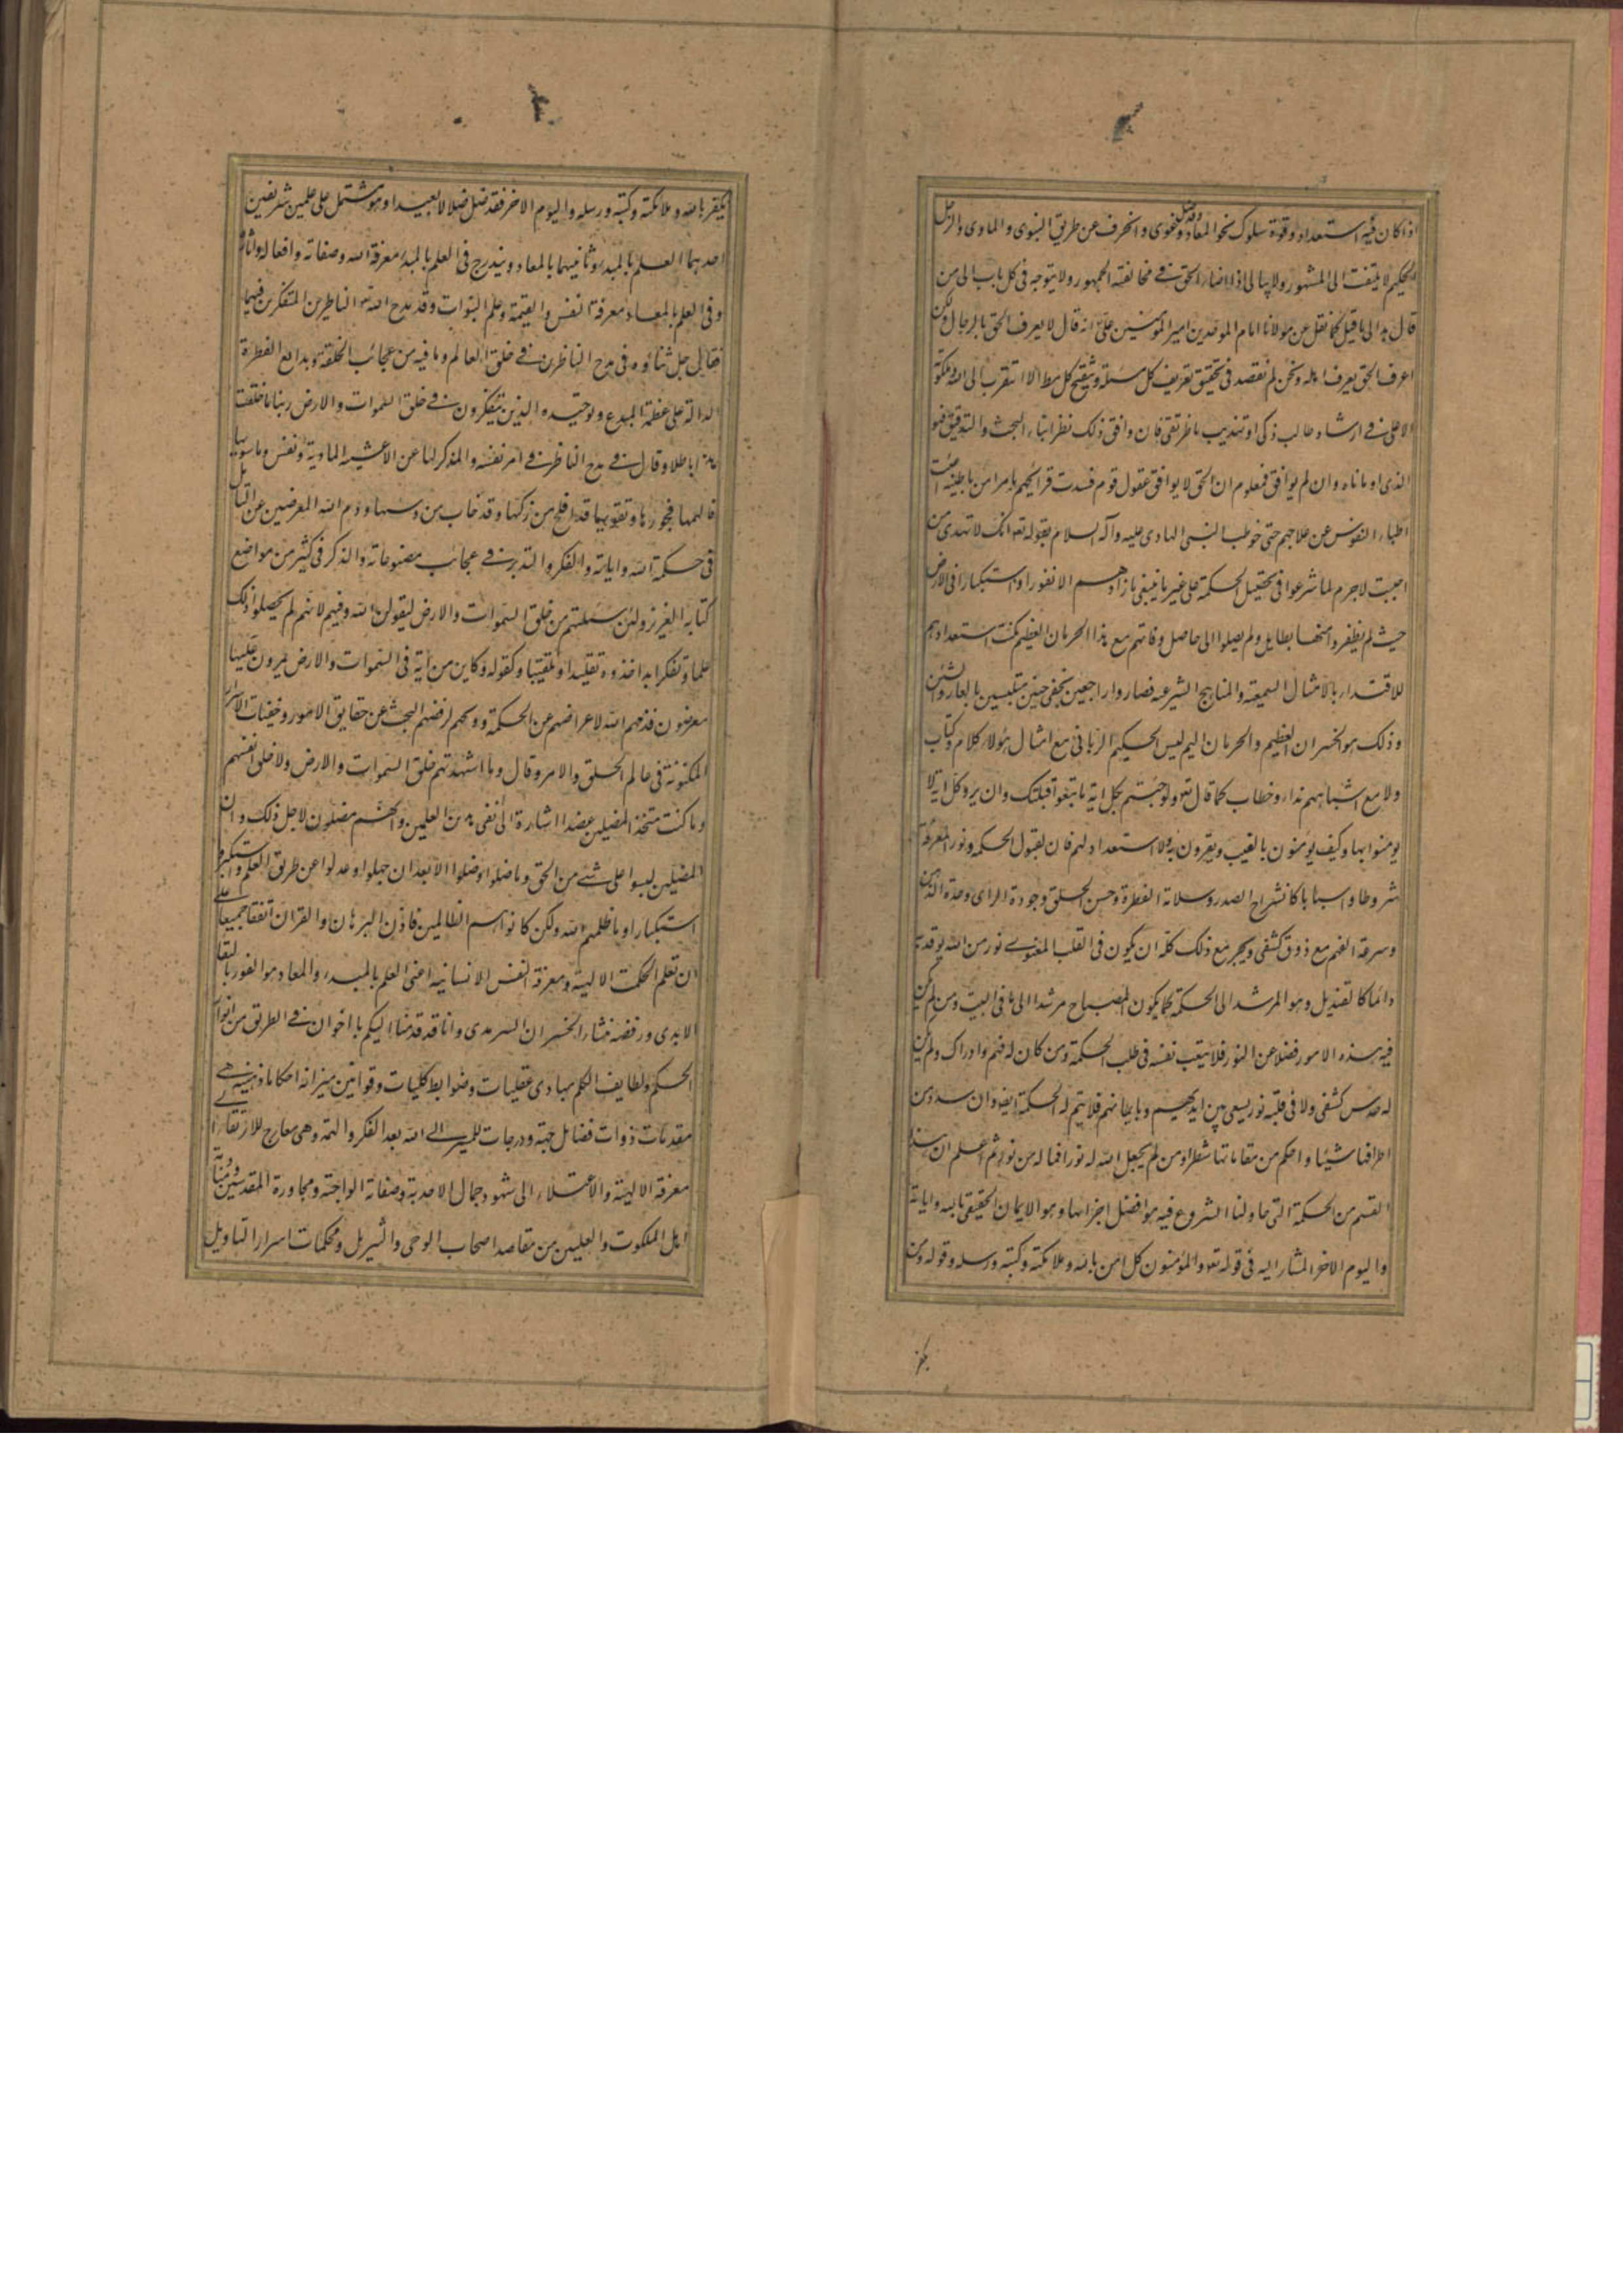 اذا كان فيه استعداد وقوة سلوك نحو المعاد وقد ضل وغوى وانحرف عن طريق النبوى والماوى والرجل
الحكيم لا يلتفت الى المشهور ولا يبالى اذا اصاب الحق فى مخالفته الجمهور ولا يتوجه فى كل باب الى من
قال بل الى ما قيل كما نقل عن مولانا امام الموحدين امير المؤمنين على انه قال لا يعرف الحق بالرجال ولكن
اعرف الحق يعرف اهله ونحن لم نقصد فى تحقيق تعريف كل مسئلة وتنقيح كل مطلب الا التقرب الى الله وملكوته
الاعلى فى ارشاد طالب ذكى او تهذيب خاطر نقى فان وافق ذلك نظر ابناء البحث والتدقيق فهو
الذى اومأناه وان لم يوافق فمعلوم ان الحق لا يوافق عقول قوم فسدت قرائحهم بامراض باطنية اعيت
اطباء النفوس عن علاجهم حتى خوطب النبى الهادى عليه وآله السلام بقوله تعه انك لا تهدى من
احببت لاجرم لما شرعوا فى تحصيل الحكمة على غير ما ينبغى ما زادهم الا نفورا واستكبارا فى الارض
حيث لم يظفروا منها بطايل ولم يصلوا الى حاصل وفاتهم مع هذا الحرمان العظيم مكنت استعدادهم
للاقتداء بالامثال السمعية والمناهج الشرعية فصاروا راجعين بخفى حنين متلبسين بالعار والشين
وذلك هو الخسران العظيم والحرمان اليم ليس الحكيم الربانى مع امثال هؤلاء كلام وكتاب
ولا مع اشباههم نداء وخطاب كما قال تعه ولو جئتهم بكل اية ما تبعوا قبلتك وان يروا كل اية لا
يومنوا بها وكيف يؤمنون بالغيب ويقرون به ولا استعداد لهم فان لقبول الحكمة ونور المعرفة
شروطا واسبابا كانشراح الصدر وسلامة الفطرة وحسن الخلق وجودة الراى وحدة الذهن
وسرعة الفهم مع ذوق كشفى ويجب مع ذلك كله ان يكون فى القلب المعنوى نور من الله يوقد به
دائما كالقنديل وهو المرشد الى الحكمة كما يكون المصباح مرشدا الى ما فى البيت ومن لم يكن
فيه هذه الامور فضلا عن النور فلا يتعب نفسه فى طلب الحكمة ومن كان له فهم وادراك ولم يكن
له حدس كشفى ولا فى قلبه نور يسعى بين ايديهم وبايمانهم فلا يتم له الحكمة ايضا وان سدد من
اطرافها شيئا واحكم من مقاماتها شطرا ومن لم يجعل الله له نورا فما له من نور ثم اعلم ان هذا
القسم من الحكمة التى حاولنا الشروع فيه هو افضل اجزائها وهو الايمان الحقيقى بالله واياته
واليوم الاخر المشار اليه فى قوله تعه والمؤمنون كل امن بالله وملائكته وكتبه ورسله وقوله ومن
يكفر
يكفر بالله وملائكته وكتبه ورسله واليوم الاخر فقد ضل ضلالا بعيدا وهو مشتمل على علمين شريفين
احدهما العلم بالمبدء وثانيهما بالمعاد ويندرج فى العلم بالمبدء معرفة الله وصفاته وافعاله واثاره
وفى العلم بالمعاد معرفة النفس والقيمة وعلم النبوات وقد مدح الله تعه الناظرين المتفكرين فيهما
فقال جل ثناؤه فى مدح الناظرين فى خلق العالم وما فيه من عجائب الخلقة وبدايع الفطرة
الدالة على عظمة المبدع وتوحيده الذين يتفكرون فى خلق السموات والارض ربنا ما خلقت
هذا باطلا وقال فى مدح الناظر فى امر نفسه والمذكر لها عن الاغشية المادية ونفس وما سويها
فالهمها فجورها وتقويها قد افلح من زكيها وقد خاب من دسيها وذم الله المعرضين عن التأمل
فى حكمة الله واياته والفكر والتدبر فى عجائب مصنوعاته والذكر فى كثير من مواضع
كتابه العزيز ولئن سئلتهم من خلق السموات والارض ليقولن الله وفيهم لانهم لم يحصلوا ذلك
علما وتفكرا بل اخذوه تقليدا وتلقيبا وكقوله وكاين من آية فى السموات والارض يمرون عليها
معرضون فذمهم الله لاعراضهم عن الحكمة ووبخهم لرفضهم البحث عن حقايق الامور وخفيات الاسرار
المكنونة فى عالم الخلق والامر وقال وما اشهدتهم خلق السموات والارض ولا خلق انفسهم
وما كنت متخذ المضلين عضدا اشارة الى نفى هذين العلمين وانهم مضلون لاجل ذلك وان
المضلين ليسوا على شئ من الحق وما ضلوا واضلوا الا بعد ان جهلوا وعدلوا عن طريق العلم واستكبروا
استكبارا وما ظلمهم الله ولكن كانوا هم الظالمين فاذن البرهان والقران اتفقا جميعا على
ان تعلم الحكمت الالهية ومعرفة النفس الانسانية اعنى العلم بالمبدء والمعاد هو الفوز بالبقاء
الابدى ورفضه منشاء الخسران السرمدى وانا قد قدمنا اليكم يا اخوان فى الطريق من انوار
الحكم ولطايف الكلم مبادى عقليات وضوابط كليات وقوانين ميزانة احكاما ذهنية هى
مقدمات ذوات فضائل جمة ودرجات للسير الى الله بعد الفكر والهمة وهى معارج للارتقاء الى
معرفة الالهية والاعتلاء الى شهود جمال الاحدية وصفاته الواجبة ومجاورة المقدسين ومنادمة
اهل الملكوت والعليين من مقاصد اصحاب الوحى والتنزيل ومحكمات اسرار التاويل